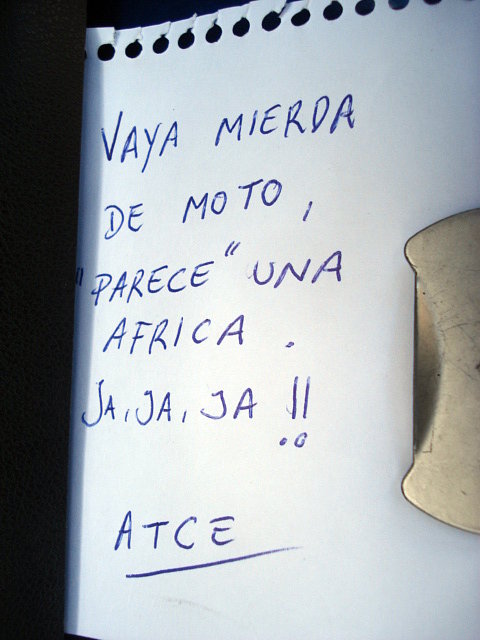 VAYA MIERDA
DE MOTO,
"PARECE" UNA
AFRICA.
JA, JA, JA !!
ATCE